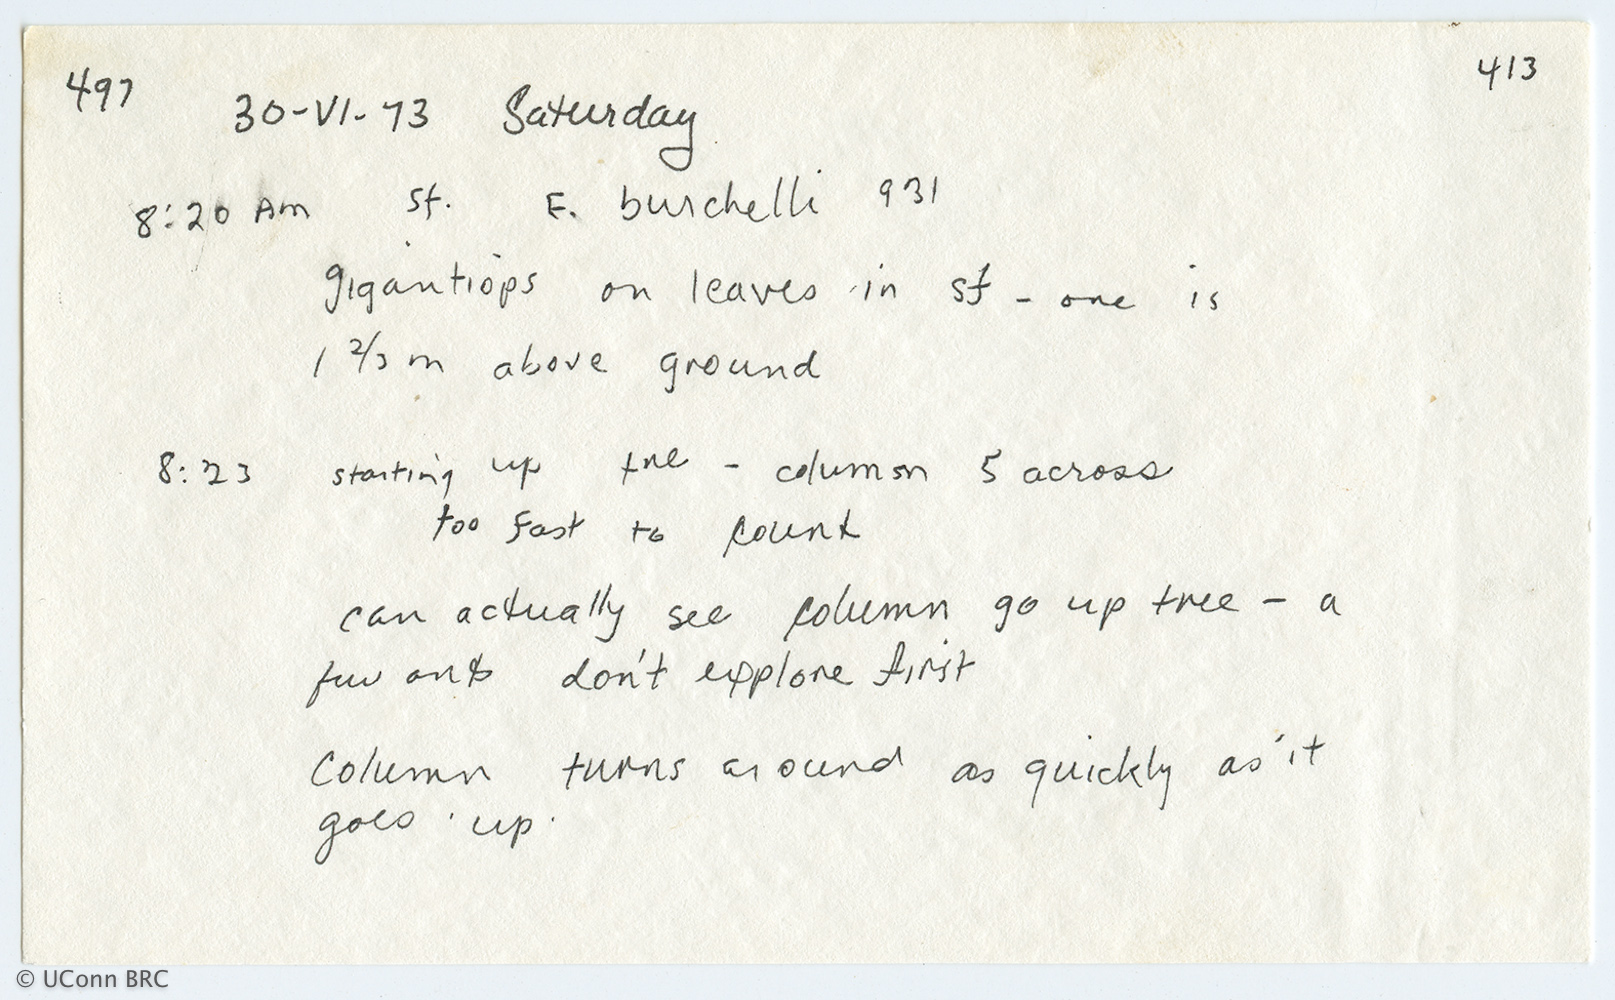 497
413
30-VI-73 Saturday
8:20 Am sf. E. burchelli 931
gigantiops on leaves in sf - one is
1 2/3 m above ground
8:23 starting up tree - column 5 across
too fast to count
can actually see column go up tree - a
few ants don't explore first
Column turns around as quickly as it
goes up.
© UConn BRC